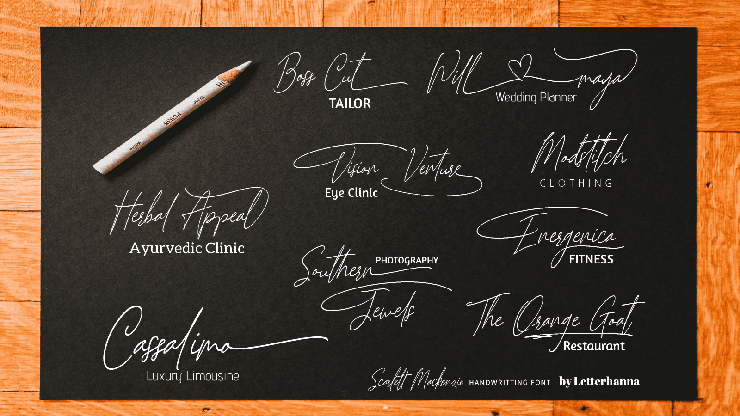 Boss Cut
TAILOR
Will maya
Wedding Planner
Vision Venture
Eye Clinic
Modstitch
CLOTHING
Herbal Appeal
Ayurvedic Clinic
Energenica
FITNESS
Southern
PHOTOGRAPHY
Jewels
The Orange Goat
Restaurant
Cassalimo
Luxury Limousine
Scalett Mackenzie HANDWRITTING FONT by Letterhanna